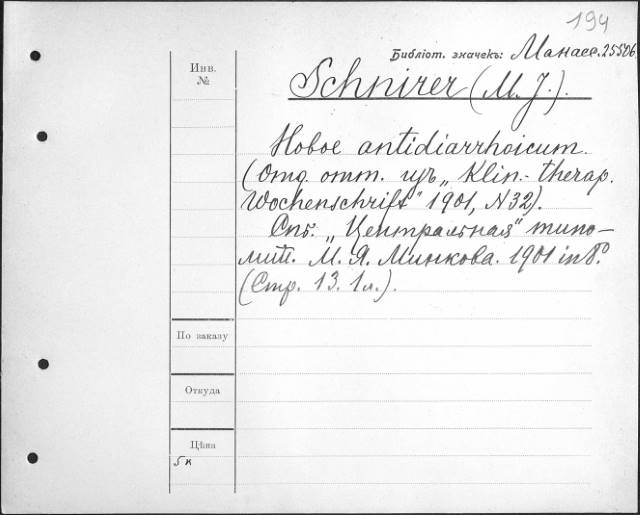 194
Библіот. значекъ: Манасе. 25526
Инв.
№
Schnirer (M. J.).
Новое antidiarrhoicum.
(Отд. отт. изъ „Klin.-therap.
Wochenschrift" 1901, N 32).
Спб. „Центральная" типо-
лит. М. Я. Минкова. 1901 in 8°.
(Стр. 13. 1 л.).
По заказу
Откуда
Цѣна
5 к